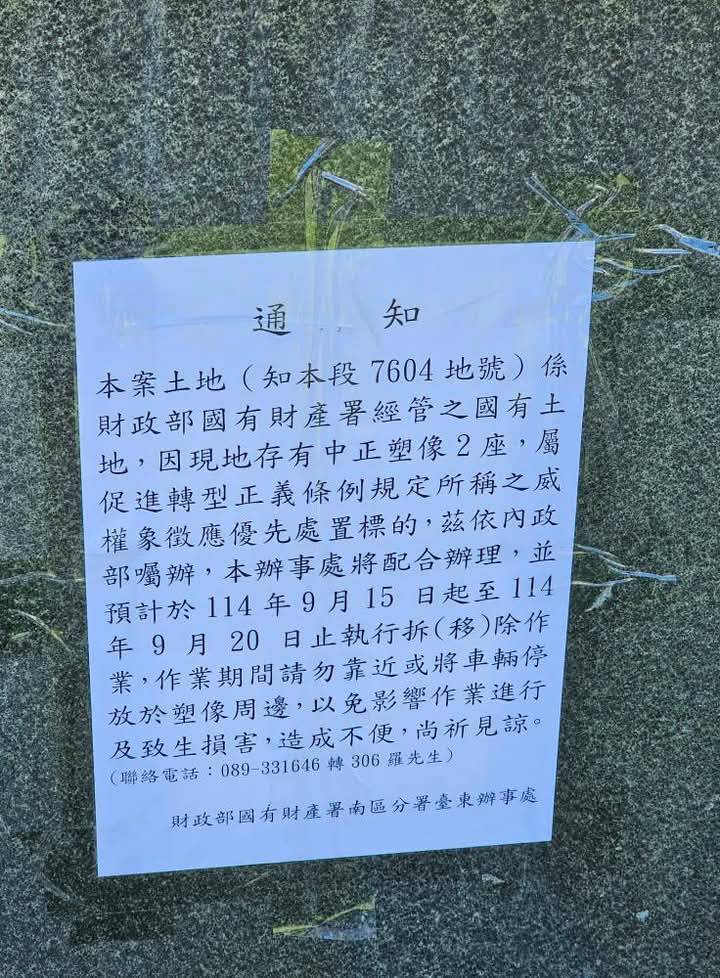 通 知
本案土地（知本段 7604 地號）係
財政部國有財產署經管之國有土
地，因現地存有中正塑像 2 座，屬
促進轉型正義條例規定所稱之威
權象徵應優先處置標的，茲依內政
部囑辦，本辦事處將配合辦理，並
預計於 114 年 9 月 15 日起至 114
年 9 月 20 日止執行拆(移)除作
業，作業期間請勿靠近或將車輛停
放於塑像周邊，以免影響作業進行
及致生損害，造成不便，尚祈見諒。
（聯絡電話：089-331646 轉 306 羅先生）
財政部國有財產署南區分署臺東辦事處